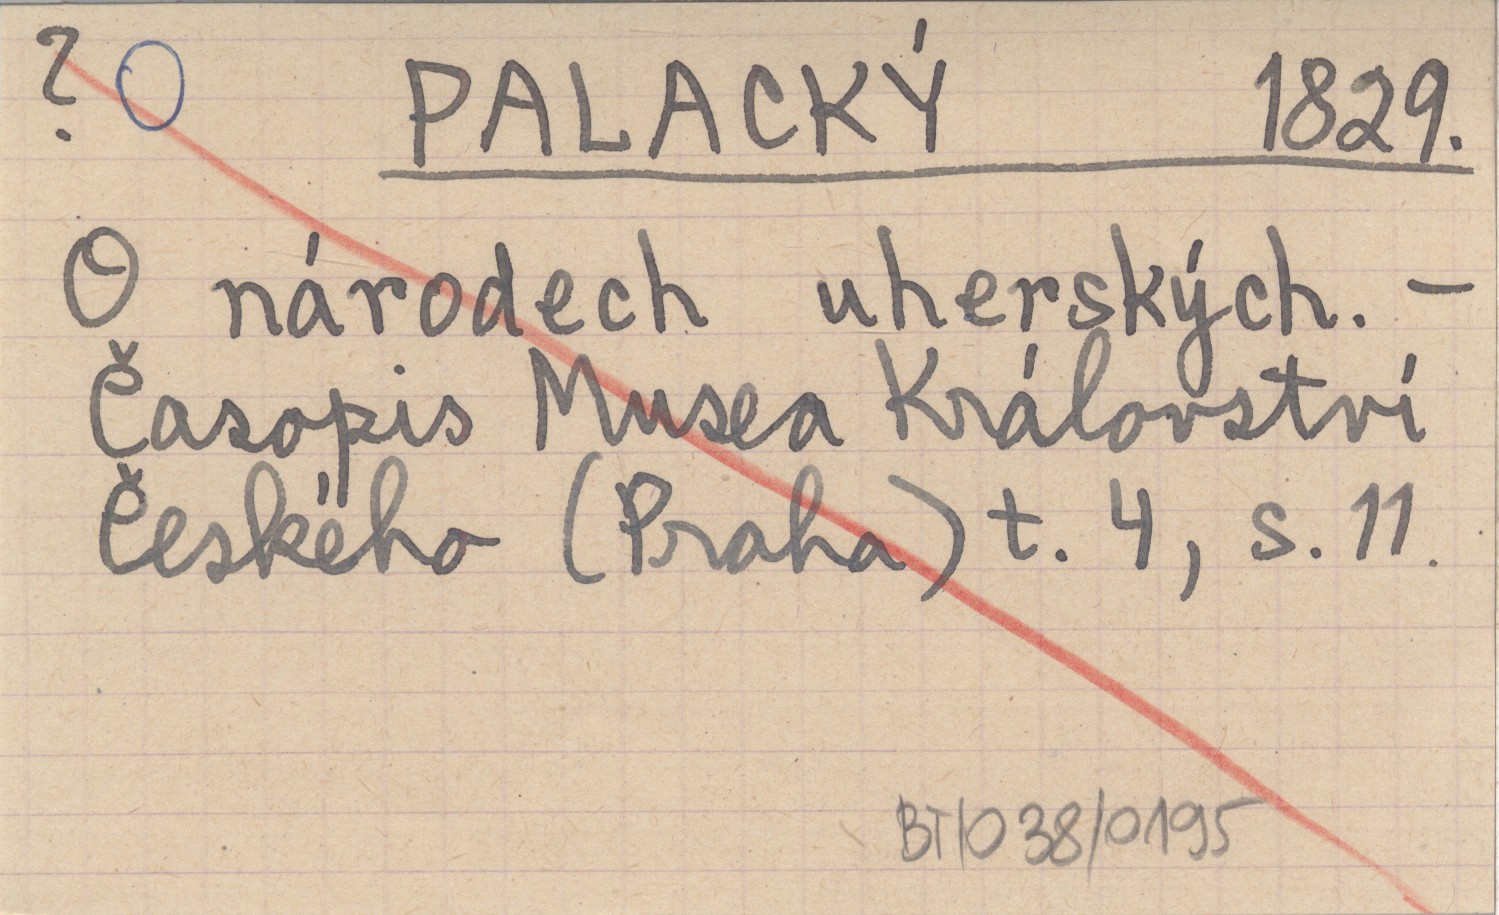 ? O PALACKÝ 1829.
O národech uherských. -
Časopis Musea Království
Českého (Praha) t. 4, s. 11.
BT/038/0195